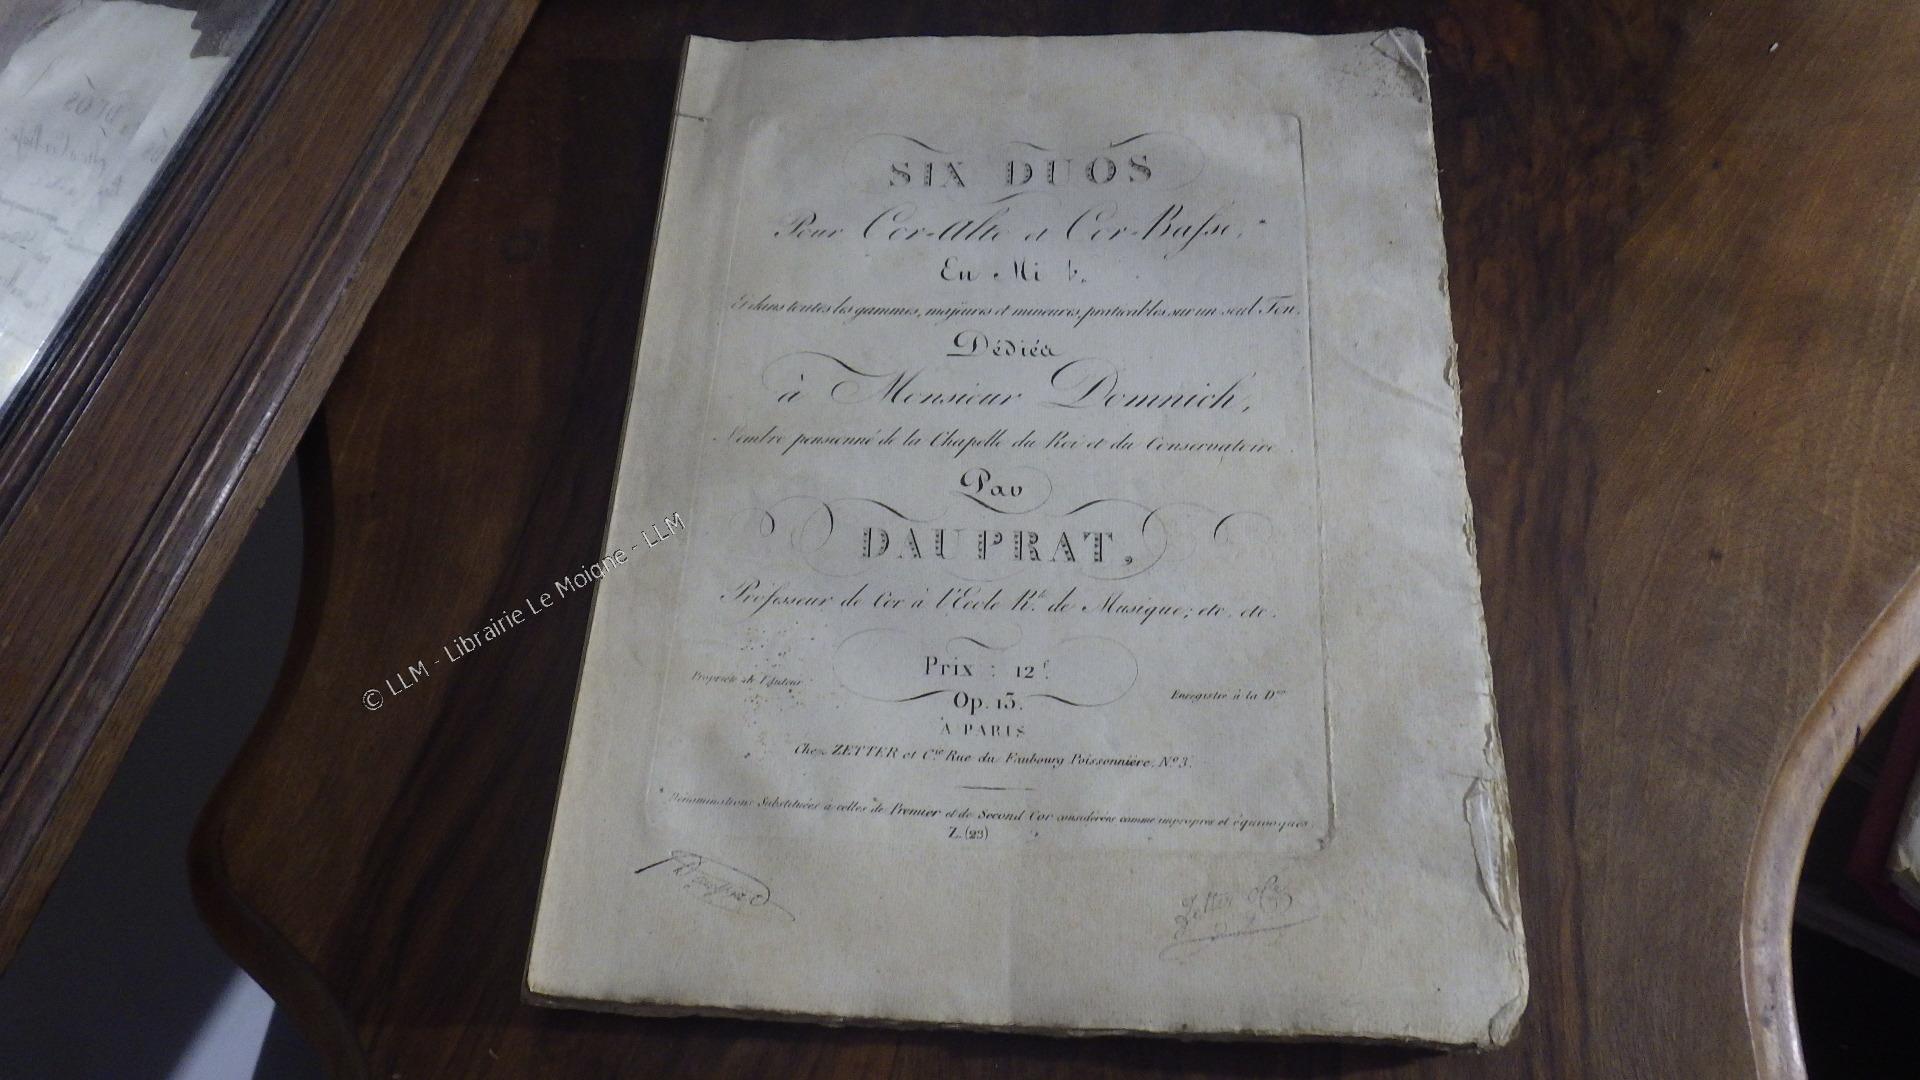 SIX DUOS
Pour Cor-Alto et Cor-Basse,*
En Mi b.
Et dans toutes les gammes, majeures et mineures, praticables sur un seul Ton.
Dédiés
à Monsieur Domnich,
Membre pensionné de la Chapelle du Roi et du Conservatoire.
Par
DAUPRAT,
Professeur de Cor à l'Ecole Rle. de Musique; etc. etc.
Prix : 12f.
Propriété de l'Auteur.
Enregistré à la Don
Op. 13.
À PARIS
Chez ZETTER et Cie. Rue du Faubourg Poissonnière, No 3.
* Dénominations Substituées à celles de Premier et de Second Cor considérées comme impropres et équivoques.
Z. (23)
Zetter
© LLM - Librairie Le Moigne - LLM